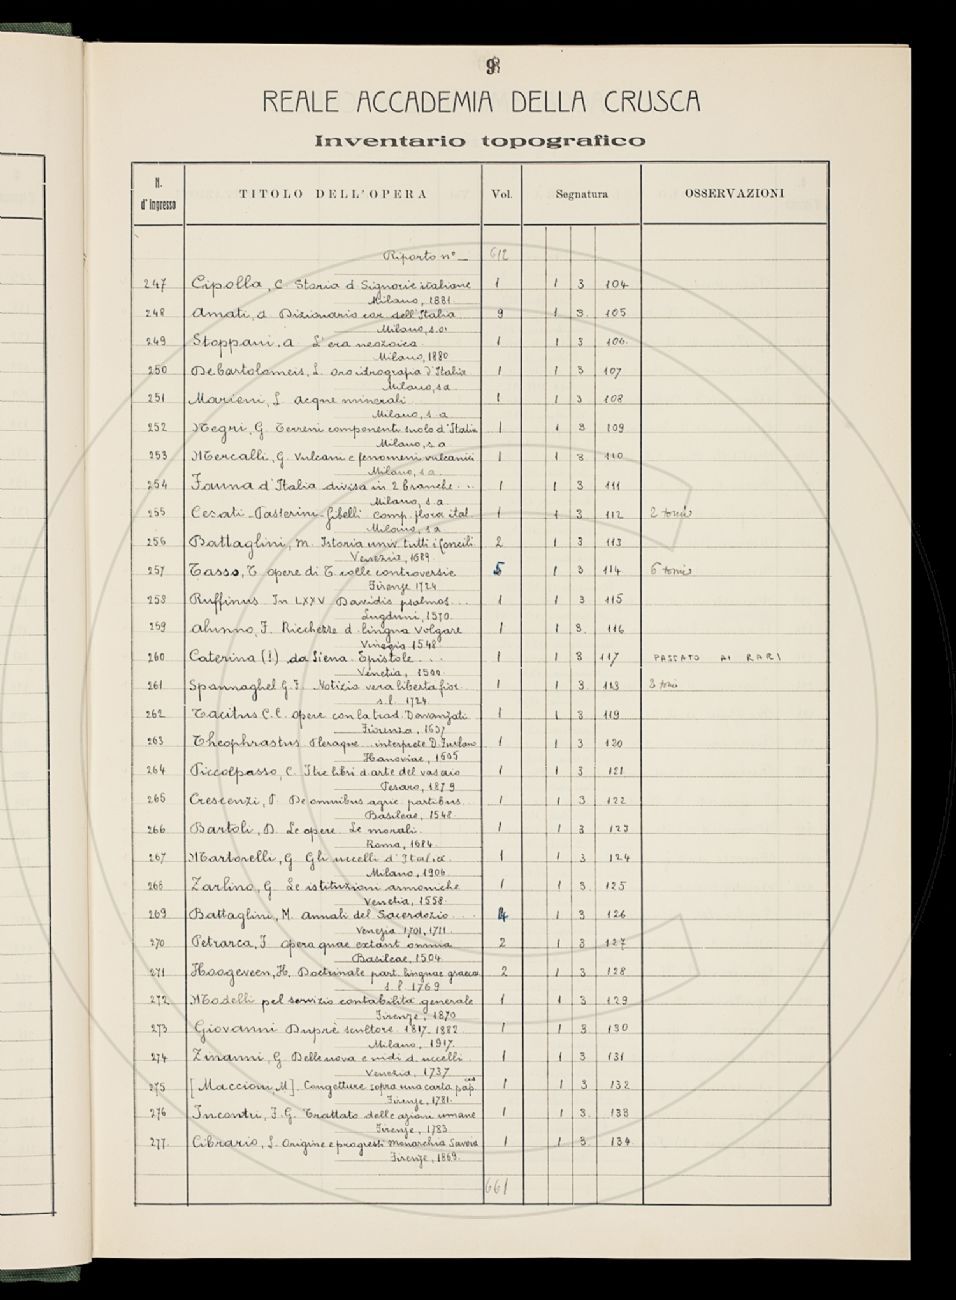 9
REALE ACCADEMIA DELLA CRUSCA
Inventario topografico
N. d'Ingresso TITOLO DELL'OPERA Vol. Segnatura OSSERVAZIONI
Riporto n° 612
247 Cipolla, C. Storia d Signorie italiane 1 1 3 104
Milano, 1881
248 Amati, A Dizionario cor. dell'Italia 9 1 3. 105
Milano, s.a.
249 Stoppani, A L'era neozoica 1 1 3 106.
Milano, 1880
250 De bartolomeis, L. Oro idrografia d'Italia 1 1 3 107
Milano, s a
251 Marieni, L acque minerali 1 1 3 108
Milano, s. a
252 Negri, G. Terreni componenti suolo d'Italia 1 1 3 109
Milano, s. a
253 Mercalli, G. Vulcani e fenomeni vulcanici 1 1 3 110
Milano, s a
254 Fauna d'Italia divisa in 2 branche ... 1 1 3 111
Milano, s. a
255 Cesati - Passerini - Gibelli Comp. flora ital. 1 1 3 112 2 tomi
Milano, s a
256 Battaglini, M. Istoria univ. tutti i Concili 2 1 3 113
Venezia, 1689
257 Tasso, T opere di T. colle controversie 5 1 3 114 6 tomi
Firenze 1724
258 Ruffinus In LXXV Davidis psalmos ... 1 1 3 115
Lugduni, 1570.
259 Alunno, F. Ricchezze d. lingua Volgare 1 1 3. 116
Vinegia 1548
260 Caterina (S) da Siena. Epistole ... 1 1 3 117 PASSATO AI RARI
Venetia, 1500
261 Spannaghel G. F. Notizia vera libertà fior. 1 1 3 118 2 tomi
s.l. 1724
262 Tacitus C. C. opere con la trad. Davanzati 1 1 3 119
Fiorenza, 1637
263 Theophrastus Pleraque ... interprete D. Furlano 1 1 3 120
Hanoviae, 1605
264 Piccolpasso, C. I tre libri d. arte del vasaio 1 1 3 121
Pesaro, 1879
265 Crescenzi, P. De omnibus agric. partibus. 1 1 3 122
Basileae, 1548
266 Bartoli, D. Le opere Le morali. 1 1 3 123
Roma, 1684.
267 Martorelli, G Gli uccelli d'Italia 1 1 3 124
Milano, 1906
268 Zarlino, G. Le istituzioni armoniche 1 1 3. 125
Venetia, 1558.
269 Battaglini, M. annali del Sacerdozio ... 4 1 3 126
Venezia 1701, 1711.
270 Petrarca, F opera quae extant omnia 2 1 3 127
Basileae, 1504
271 Hoogeveen, H. Doctrinale part. linguae graecae 2 1 3 128
s. l 1769
272. Modelli pel servizio contabilità generale 1 1 3 129
Firenze, 1870
273 Giovanni Duprè scultore. 1817-1882 1 1 3 130
Milano, 1917.
274 Zinanni, G Delle uova e nidi d. uccelli 1 1 3 131
Venezia, 1737
275 [Maccioni, M]. Congetture sopra una carta pap. 1 1 3 132
Firenze, 1781.
276 Incontri, F. G. Trattato delle azioni umane 1 1 3. 133
Firenze, 1783
277. Cibrario, L. Origine e progressi Monarchia Savoia 1 1 3. 134
Firenze, 1869.
661